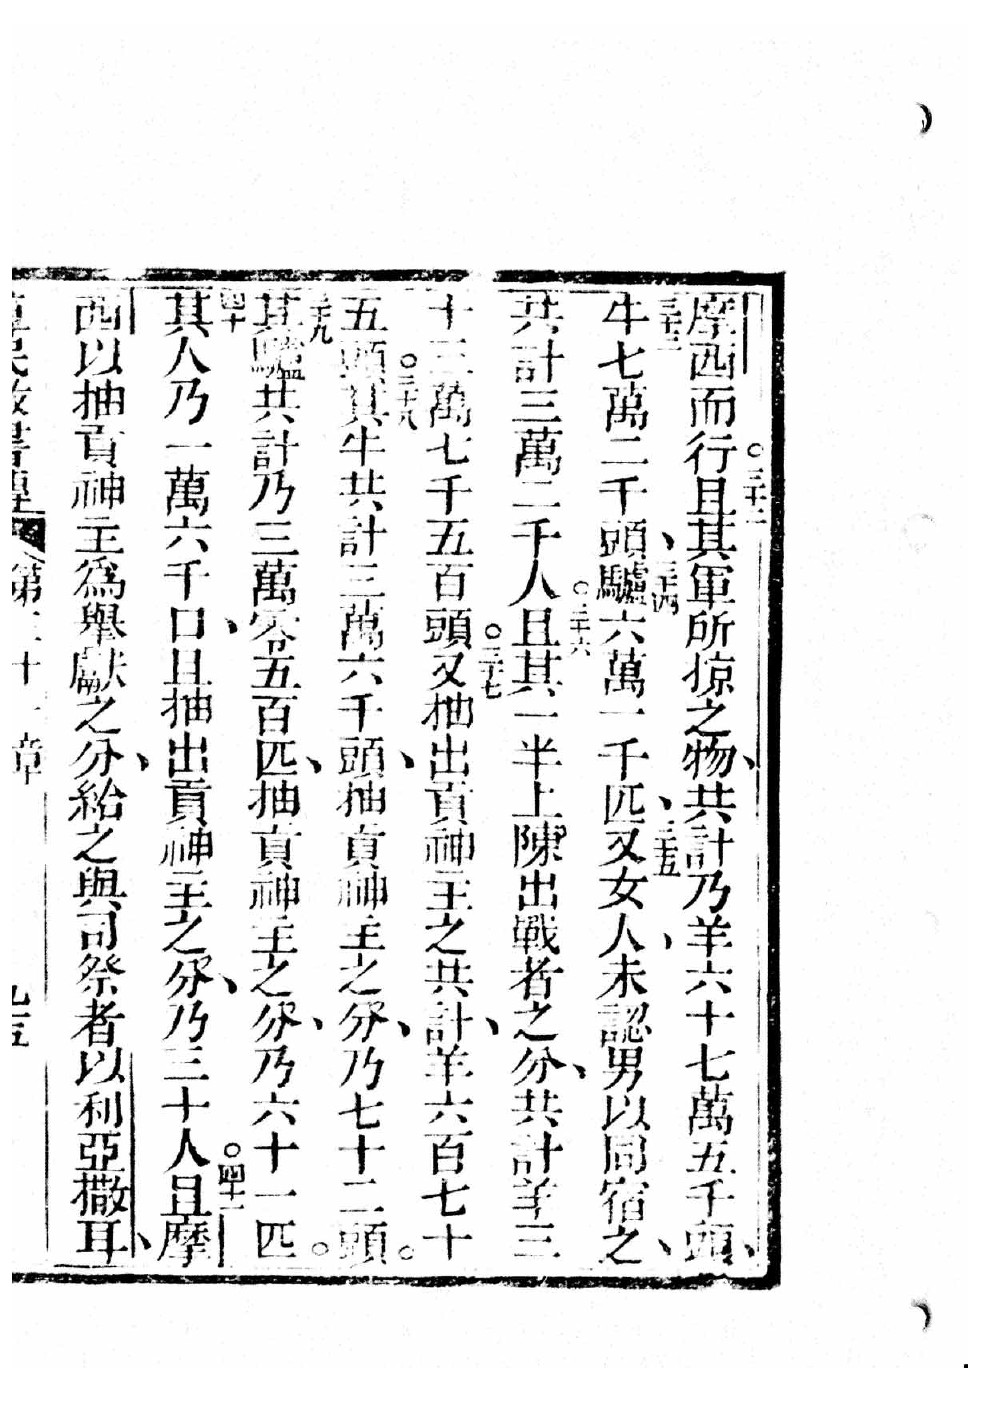 摩西而行。三十二且其軍所掠之物、共計乃羊六十七萬五千頭、
三十三牛七萬二千頭、三十四驢六萬一千匹、三十五又女人、未認男以同宿之、
共計三萬二千人。三十六且其一半上陳出戰者之分、共計羊三
十三萬七千五百頭。三十七又抽出貢神主之共計、羊六百七十
五頭。三十八其牛共計三萬六千頭、抽貢神主之分、乃七十二頭。
三十九其驢共計乃三萬零五百匹、抽貢神主之分、乃六十一匹。
四十其人乃一萬六千口、且抽出貢神主之分、乃三十人。四十一且摩
西以抽貢神主為舉獻之分、給之與司祭者以利亞撒耳、
第三十一章